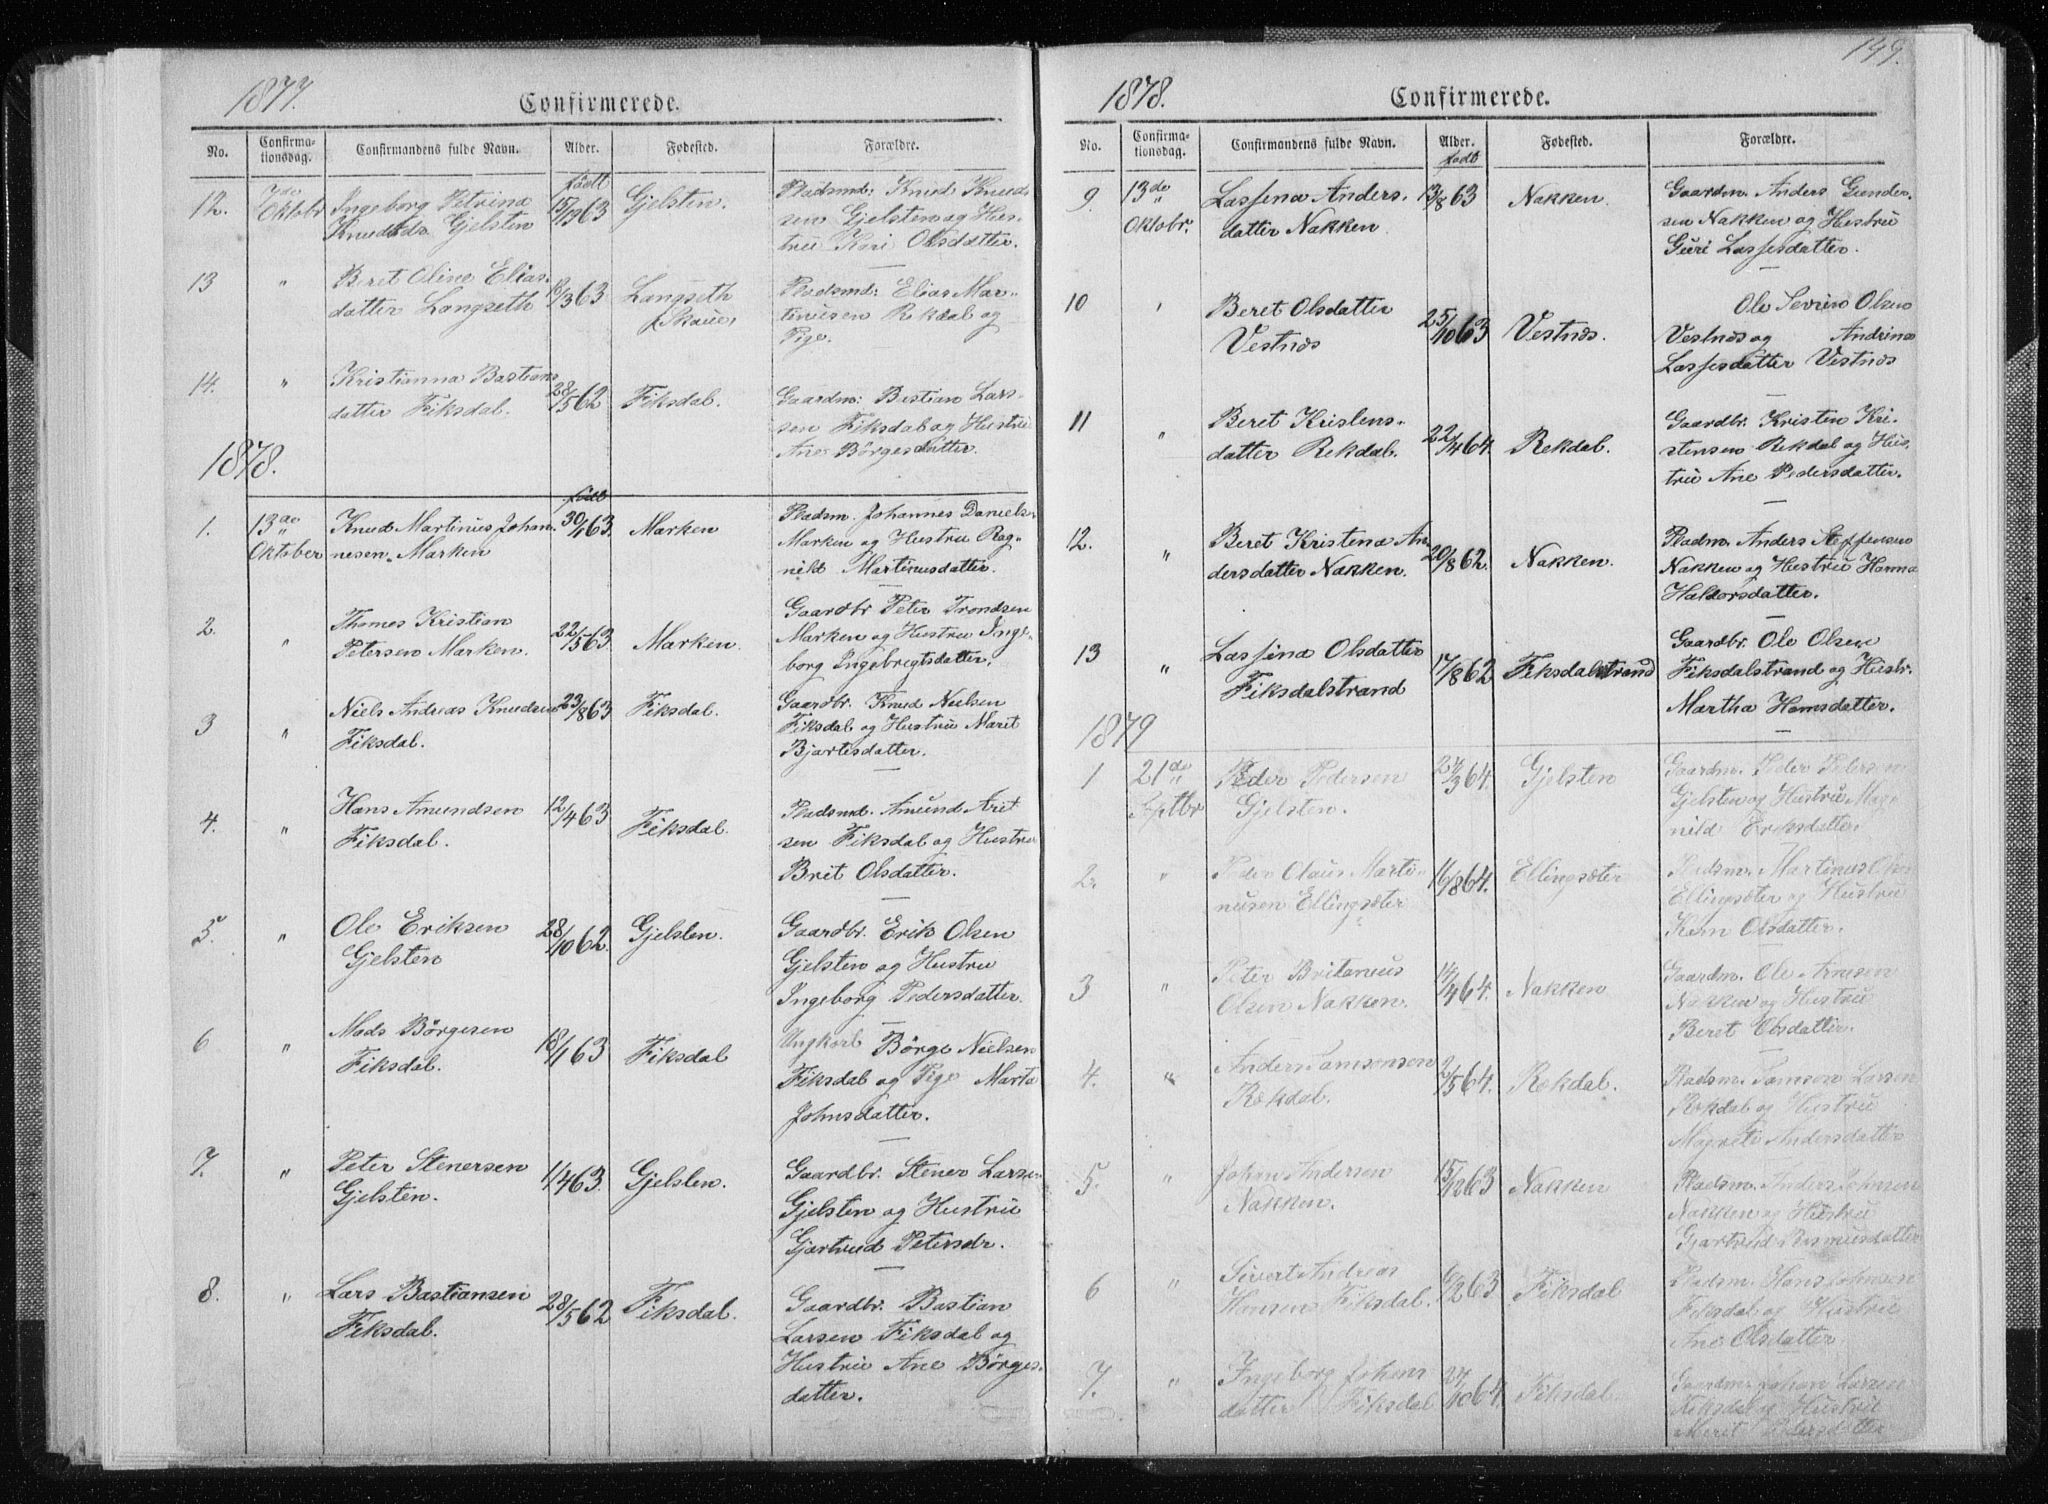 1877.
Confirmerede.
No. Confirmationsdag. Confirmandens fulde Navn. Alder. Fødested. Forældre.
12. 7de Oktobr Ingeborg Petrina født 15/9 63 Gjelsten. Pladsmd: Knud Knud-
Knudsdr. Gjelsten sen Gjelsten og Hus-
tru Kari Olsdatter.
13 " Beret Oline Elias- /3 63 Langseth Pladsmd: Elias Mar-
datter Langseth (Skaue) tinusen Rekdal og
Pige.
14. " Kristianna Bastians 28/5 62 Fiksdal. Gaardm: Bestian Lars-
datter Fiksdal. sen Fiksdal og Hustru
Ane Børgesdatter.
1878.
født
1. 13de Knud Martinus Johan- 30/1 63. Marken Pladsm. Johannes Daniels.
Oktober nesen Marken Marken og Hustru Rag-
nild Martinusdatter.
2. " Thomas Kristian 22/5 63 Marken. Gaardbr Peter Trondsen
Petersen Marken. Marken og Hustru Inge-
borg Ingebregtsdatter.
3 " Niels Andreas Knudsen 23/8 63 Fiksdal. Gaardbr. Knud Nielsen
Fiksdal. Fiksdal og Hustru Marit
Bjartesdatter.
4. " Hans Amundsen 12/4 63 Fiksdal. Pladsmd. Amund Arit
Fiksdal. sen Fiksdal og Hustru
Brit Olsdatter.
5. " Ole Eriksen 28/10 62. Gjelsten. Gaardbr. Erik Olsen
Gjelsten Gjelsten og Hustru
Ingeborg Pedersdatter.
6 " Mads Börgesen 18/1 63 Fiksdal Ungkarl Börge Nielsen
Fiksdal. Fiksdal og Pige Marta
Johnsdatter.
7. " Peter Stenersen 1/4 63. Gjelsten. Gaardbr. Stener Larsen
Gjelsten. Gjelsten og Hustru
Gjertrud Petersdr.
8. " Lars Bastiansen 28/5 62 Fiksdal. Gaardbr. Bastian
Fiksdal. Larsen Fiksdal og
Hustru Ane Börges-
datter.
149.
1878.
Confirmerede.
No. Confirmationsdag. Confirmandens fulde Navn. Alder. Fødested. Forældre.
født
9. 13de Lassena Anders- 13/8 63 Nakken. Gaardm. Anders Gunder-
Oktobr. datter Nakken sen Nakken og Hustru
Guri Lassesdatter.
10 " Beret Olsdatter 25/10 63 Vestnæs. Ole Severin Olsen
Vestnæs Vestnæs og Andrina
Lassesdatter Vestnæs
11 " Beret Kristens- 22/4 64. Rekdal. Gaardbr. Kristen Kri-
datter Rekdal. stensen Rekdal og Hus-
tru Ane Pedersdatter.
12. " Beret Kristena An- 20/8 62. Nakken. Pladm. Anders Steffensen
dersdatter Nakken. Nakken og Hustru Hanna
Haldorsdatter.
13 " Lassina Olsdatter 17/8 62 Fiksdalstrand Gaardbr. Ole Olsen
Fiksdalstrand Fiksdalstrand og Hustr.
Martha Hansdatter.
1879
1 21de Peder Pedersen 24/3 64. Gjelsten Gaardm. Peder Petersen
Septbr Gjelsten. Gjelsten og Hustru Mag-
nild Eriksdatter.
2. " Peder Olaus Marti- 16/8 64. Ellingsæter Pladsm. Martinus
nusen Ellingsæter Ellingsæter og Hustru
Olsdatter.
3 " Peter Britanus 14/4 64. Nakken Gaardm. Ole Arnesen
Olsen Nakken. Nakken og Hustru
Beret Olsdatter.
4. " Anders Samsonsen 2/5 64. Rekdal. Pladsm. Samson Larsen
Rekdal. Rekdal og Hustru
Magrete Andersdatter
5. " Johan Andersen 15/12 63 Nakken Pladsm. Anders Johnsen
Nakken. Nakken og Hustru
Gjertrud Rasmusdatter
6 " Sivert Andreas /12 63 Fiksdal Pladsm. Hans Johnsen
Hansen Fiksdal. Fiksdal og Hustru
Ane Olsdatter
7. " Ingeborg Johans 24/10 64. Fiksdal. Gaardm. Johan Larsen
datter Fiksdal Fiksdal og Hustru
Meret